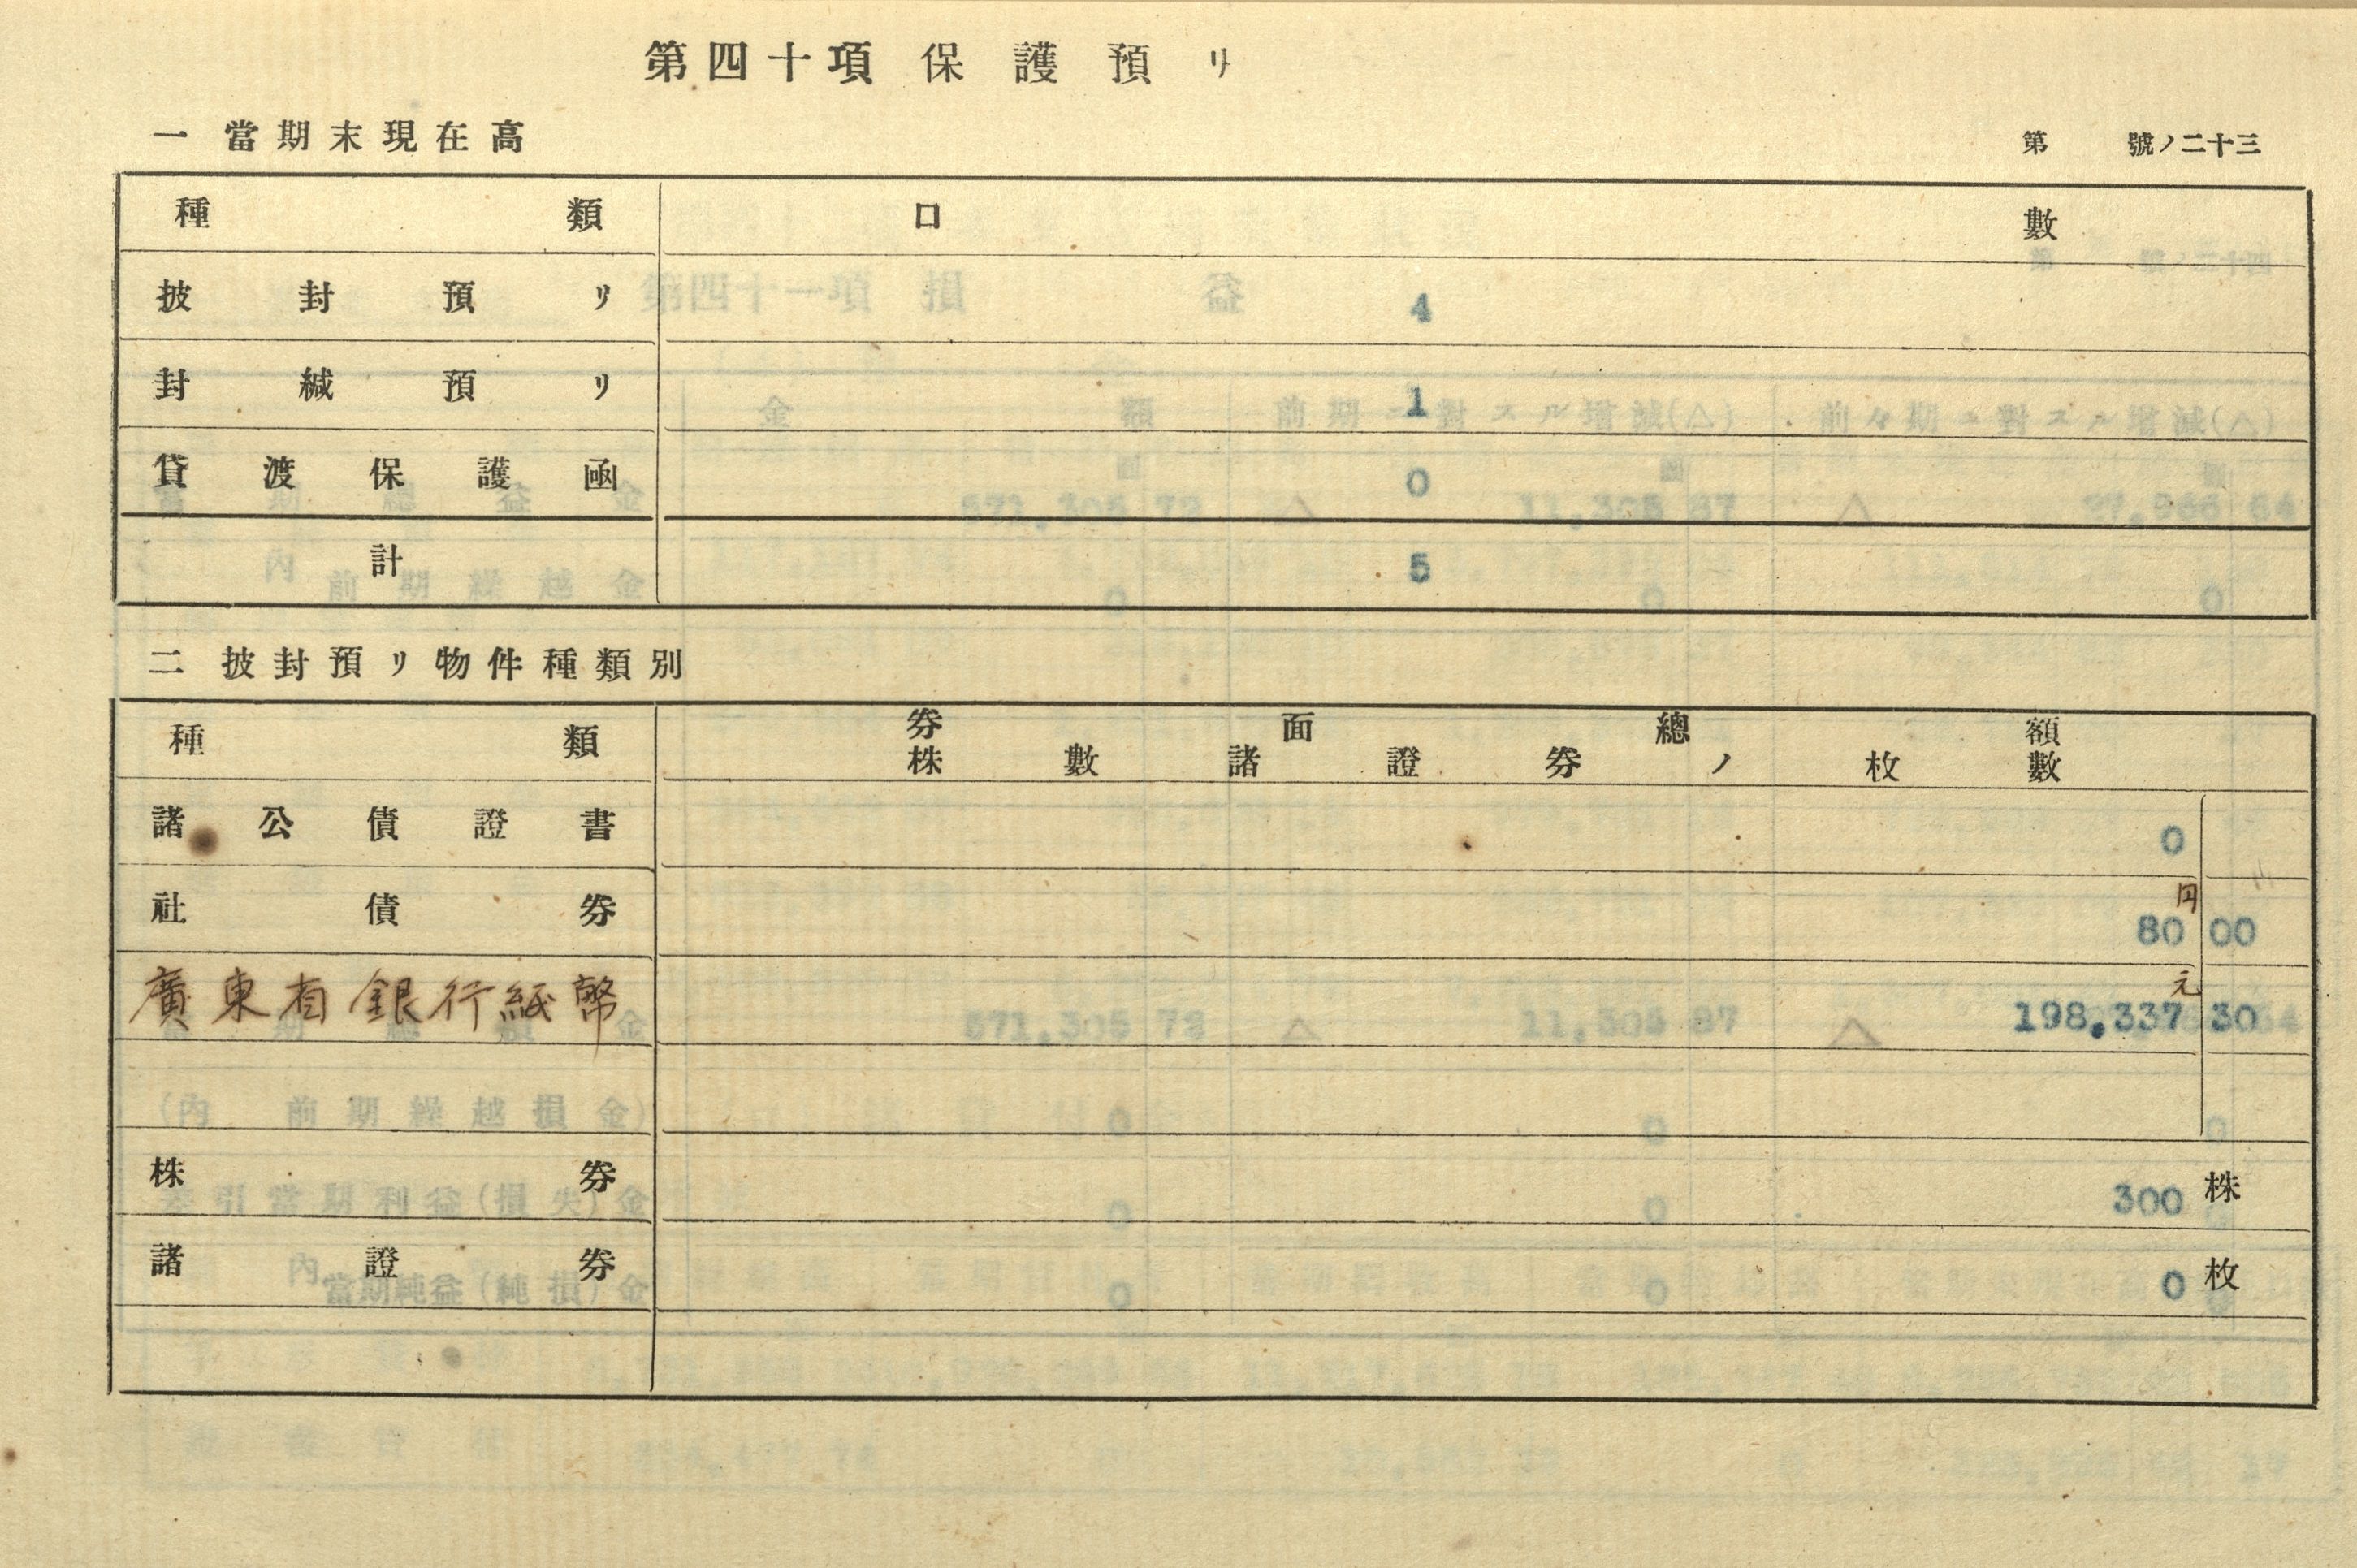 第四十項 保護預リ
一 當期末現在高
第 號ノ二十三
種類 口數
披封預リ 4
封緘預リ 1
貸渡保護函 0
計 5
二 披封預リ物件種類別
種類 券面總額
株數諸證券ノ枚數
諸公債證書 0
社債券 80円00
廣東省銀行紙幣 198,337元30
株券 300株
諸證券 0枚